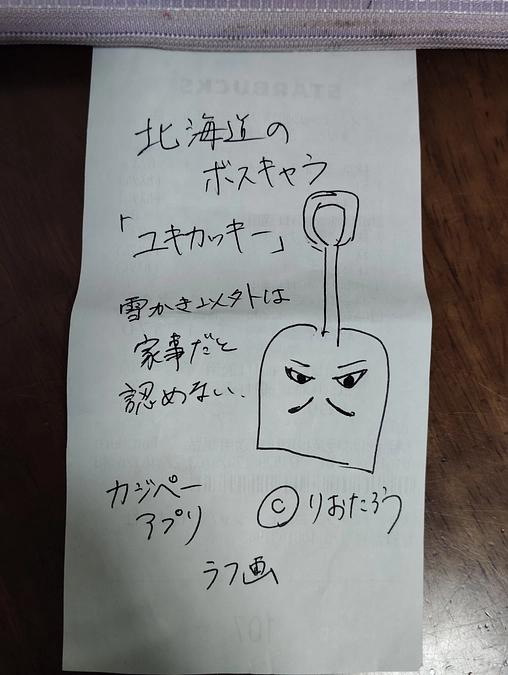 北海道の
ボスキャラ
「ユキカッキー」
雪かき以外は
家事だと
認めない、
カジペー
アプリ
©りおたろう
ラフ画
STARBUCKS
107